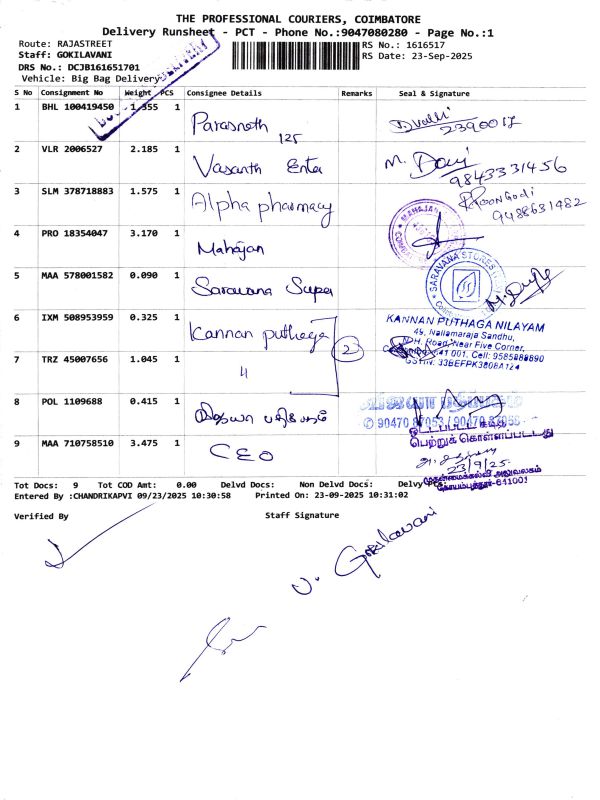 THE PROFESSIONAL COURIERS, COIMBATORE
Delivery Runsheet - PCT - Phone No.:9047080280 - Page No.:1
Route: RAJASTREET
RS No.: 1616517
Staff: GOKILAVANI
RS Date: 23-Sep-2025
DRS No.: DCJB161651701
Vehicle: Big Bag Delivery
S No Consignment No Weight PCS Consignee Details Remarks Seal & Signature
1 BHL 100419450 1.355 1 Parasnath 125
2390017
2 VLR 2006527 2.185 1 Vasanth Enter
9843331456
3 SLM 378718883 1.575 1 Alpha pharmacy
9488631482
4 PRO 18354047 3.170 1 Mahajan
5 MAA 578001582 0.090 1 Saravana Super
SARAVANA STORES
6 IXM 508953959 0.325 1 Kannan puthaga
2
KANNAN PUTHAGA NILAYAM
49, Nallamaraja Sandhu,
Road, Near Five Corner,
641 001. Cell: 9585988890
GSTIN: 33BEFPK3808A1Z4
7 TRZ 45007656 1.045 1 4
8 POL 1109688 0.415 1 விஜயா பதிப்பகம்
விஜயா பதிப்பகம்
© 90470 87053 / 90470 87058
பெற்றுக் கொள்ளப்பட்டது
9 MAA 710758510 3.475 1 CEO
23/9/25
முதன்மைக்கல்வி அலுவலகம்
கோயம்புத்தூர்-641001
Tot Docs: 9 Tot COD Amt: 0.00 Delvd Docs: Non Delvd Docs: Delvy Pcs:
Entered By :CHANDRIKAPVI 09/23/2025 10:30:58 Printed On: 23-09-2025 10:31:02
Verified By Staff Signature
V. Gokilavani